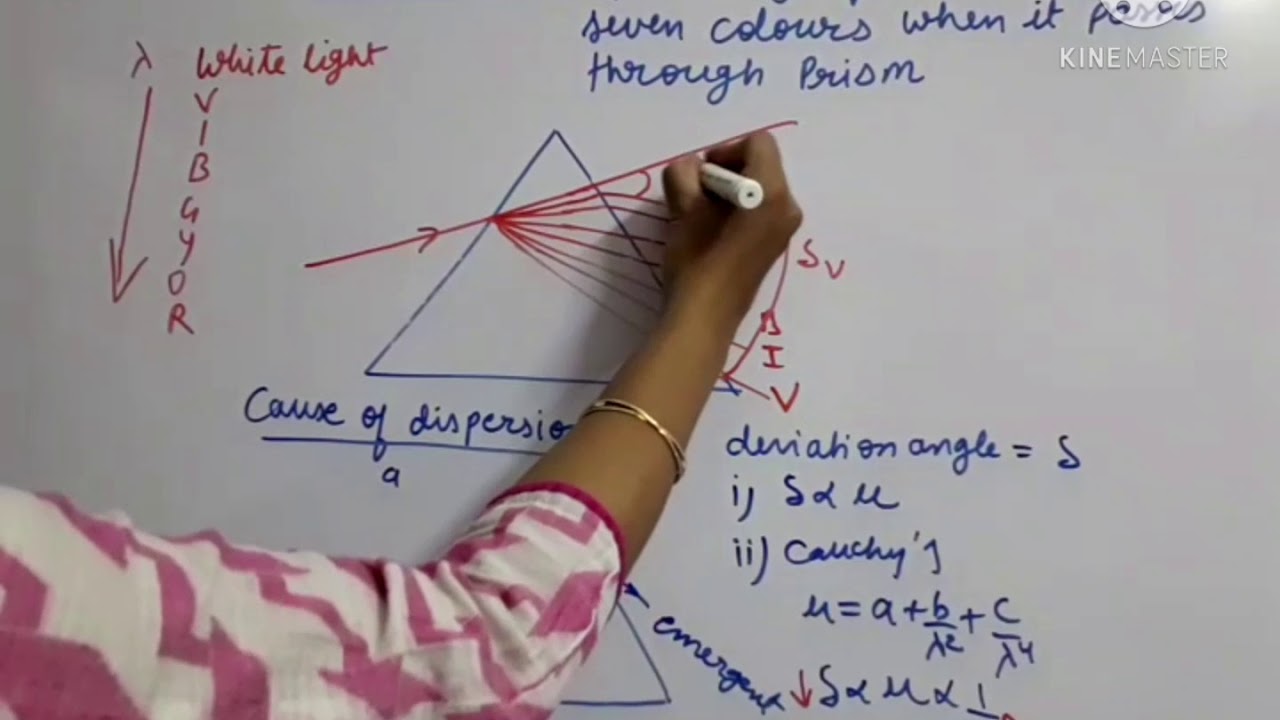 seven colours when it passes
through Prism
KINEMASTER
λ White light
V
I
B
G
Y
O
R
δv
I
V
Cause of dispersion
a
deviation angle = δ
i) δ ∝ μ
ii) Cauchy's
μ = a + b/λ² + c/λ⁴
emergent
↓ δ ∝ μ ∝ 1